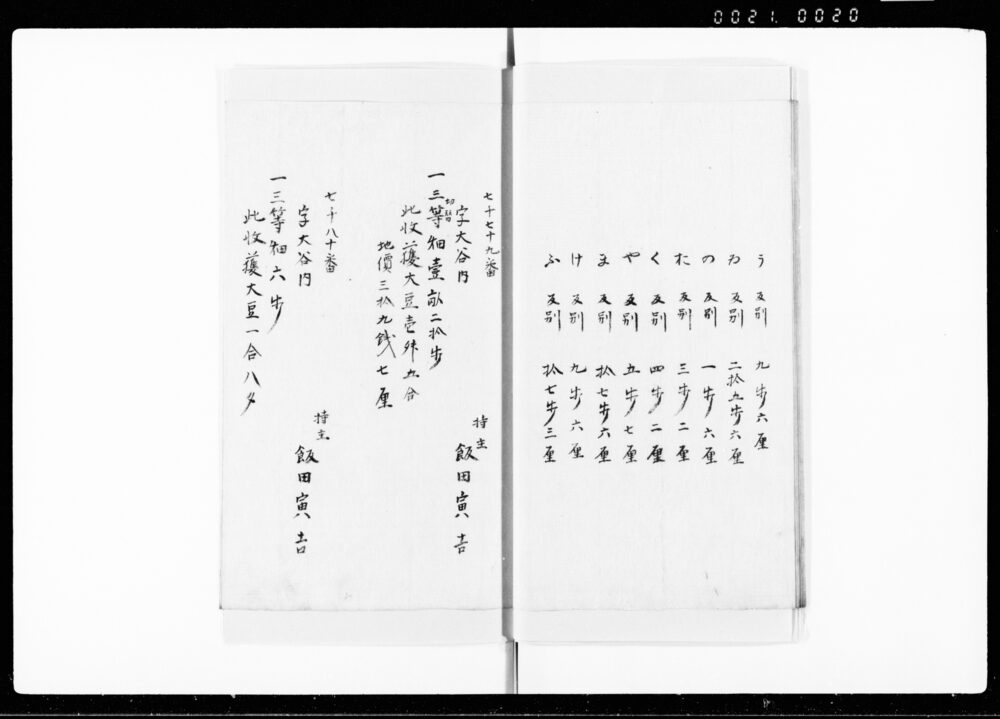 0021. 0020
う 反別 九歩六厘
ゐ 反別 二拾五歩六厘
の 反別 一歩六厘
お 反別 三歩二厘
く 反別 四歩二厘
や 反別 五歩七厘
ま 反別 拾七歩六厘
け 反別 九歩六厘
ふ 反別 拾七歩三厘
七千七十九番
字大谷内 持主 飯田寅吉
切替
一三等畑壹畝二拾歩
此收獲大豆壱舛五合
地價三拾九銭七厘
七千八十番
字大谷内 持主 飯田寅吉
一三等畑六歩
此收獲大豆一合八夕